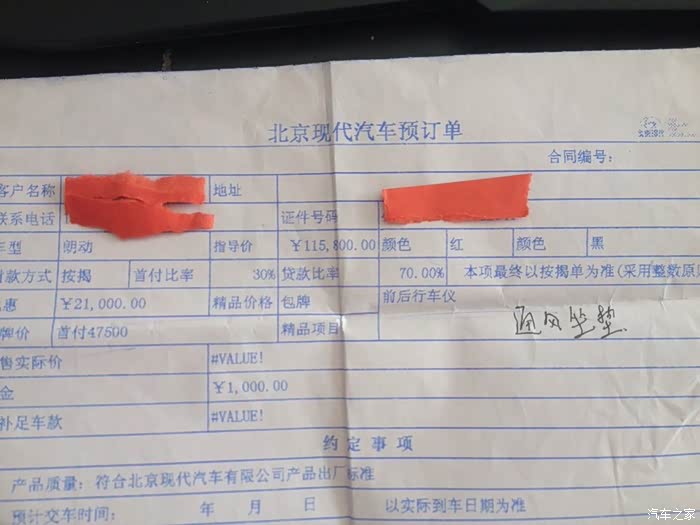 北京现代汽车预订单
合同编号：
客户名称 地址
联系电话 证件号码
车型 朗动 指导价 ￥115,800.00 颜色 红 颜色 黑
付款方式 按揭 首付比率 30% 贷款比率 70.00% 本项最终以按揭单为准(采用整数原则
惠 ￥21,000.00 精品价格 包牌 前后行车仪
牌价 首付47500 精品项目 通风坐垫
售实际价 #VALUE!
金 ￥1,000.00
补足车款 #VALUE!
约定事项
产品质量：符合北京现代汽车有限公司产品出厂标准
预计交车时间： 年 月 日 以实际到车日期为准
汽车之家